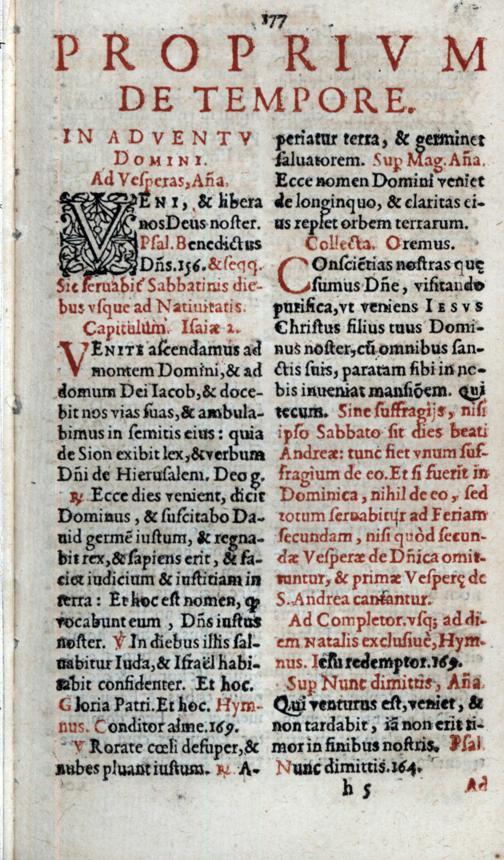 177
PROPRIVM
DE TEMPORE.
IN ADVENTV
DOMINI.
Ad Vesperas, Aña.
VENI, & libera
nos Deus noster.
Psal. Benedictus
Dñs. 156. & seqq.
Sic seruabit̃ Sabbatinis die-
bus vsque ad Natiuitatis.
Capitulum. Isaiæ 2.
VENITE ascendamus ad
montem Domini, & ad
domum Dei Iacob, & doce-
bit nos vias suas, & ambula-
bimus in semitis eius : quia
de Sion exibit lex, & verbum
Dñi de Hierusalem. Deo g.
℟. Ecce dies venient, dicit
Dominus, & suscitabo Da-
uid germẽ iustum, & regna-
bit rex, & sapiens erit, & fa-
ciet iudicium & iustitiam in
terra : Et hoc est nomen, ꝙ
vocabunt eum, Dñs iustus
noster. ℣ In diebus illis sal-
uabitur Iuda, & Israël habi-
tabit confidenter. Et hoc.
Gloria Patri. Et hoc. Hym-
nus. Conditor alme. 169.
℣ Rorate cœli desuper, &
nubes pluant iustum. ℟. A-
periatur terra, & germinet
saluatorem. Sup Mag. Aña.
Ecce nomen Domini veniet
de longinquo, & claritas ei-
us replet orbem terrarum.
Collecta. Oremus.
COnsciẽtias nostras quę
sumus Dñe, visitando
purifica, vt veniens IESVS
Christus filius tuus Domi-
nus noster, cũ omnibus san-
ctis suis, paratam sibi in no-
bis inueniat mansiõem. Qui
tecum. Sine suffragijs, nisi
ipso Sabbato sit dies beati
Andreæ: tunc fiet vnum suf-
fragium de eo. Et si fuerit in
Dominica, nihil de eo, sed
totum seruabitur ad Feriam
secundam, nisi quòd secun-
dæ Vesperæ de Dñica omit-
tuntur, & primæ Vesperę de
S. Andrea cantantur.
Ad Completor. vsq; ad di-
em Natalis exclusiuè, Hym-
nus. Iesu redemptor. 169.
Sup Nunc dimittis, Aña
Qui venturus est, veniet, &
non tardabit, iã non erit ti-
mor in finibus nostris. Psal.
Nunc dimittis. 164.
h 5
Ad